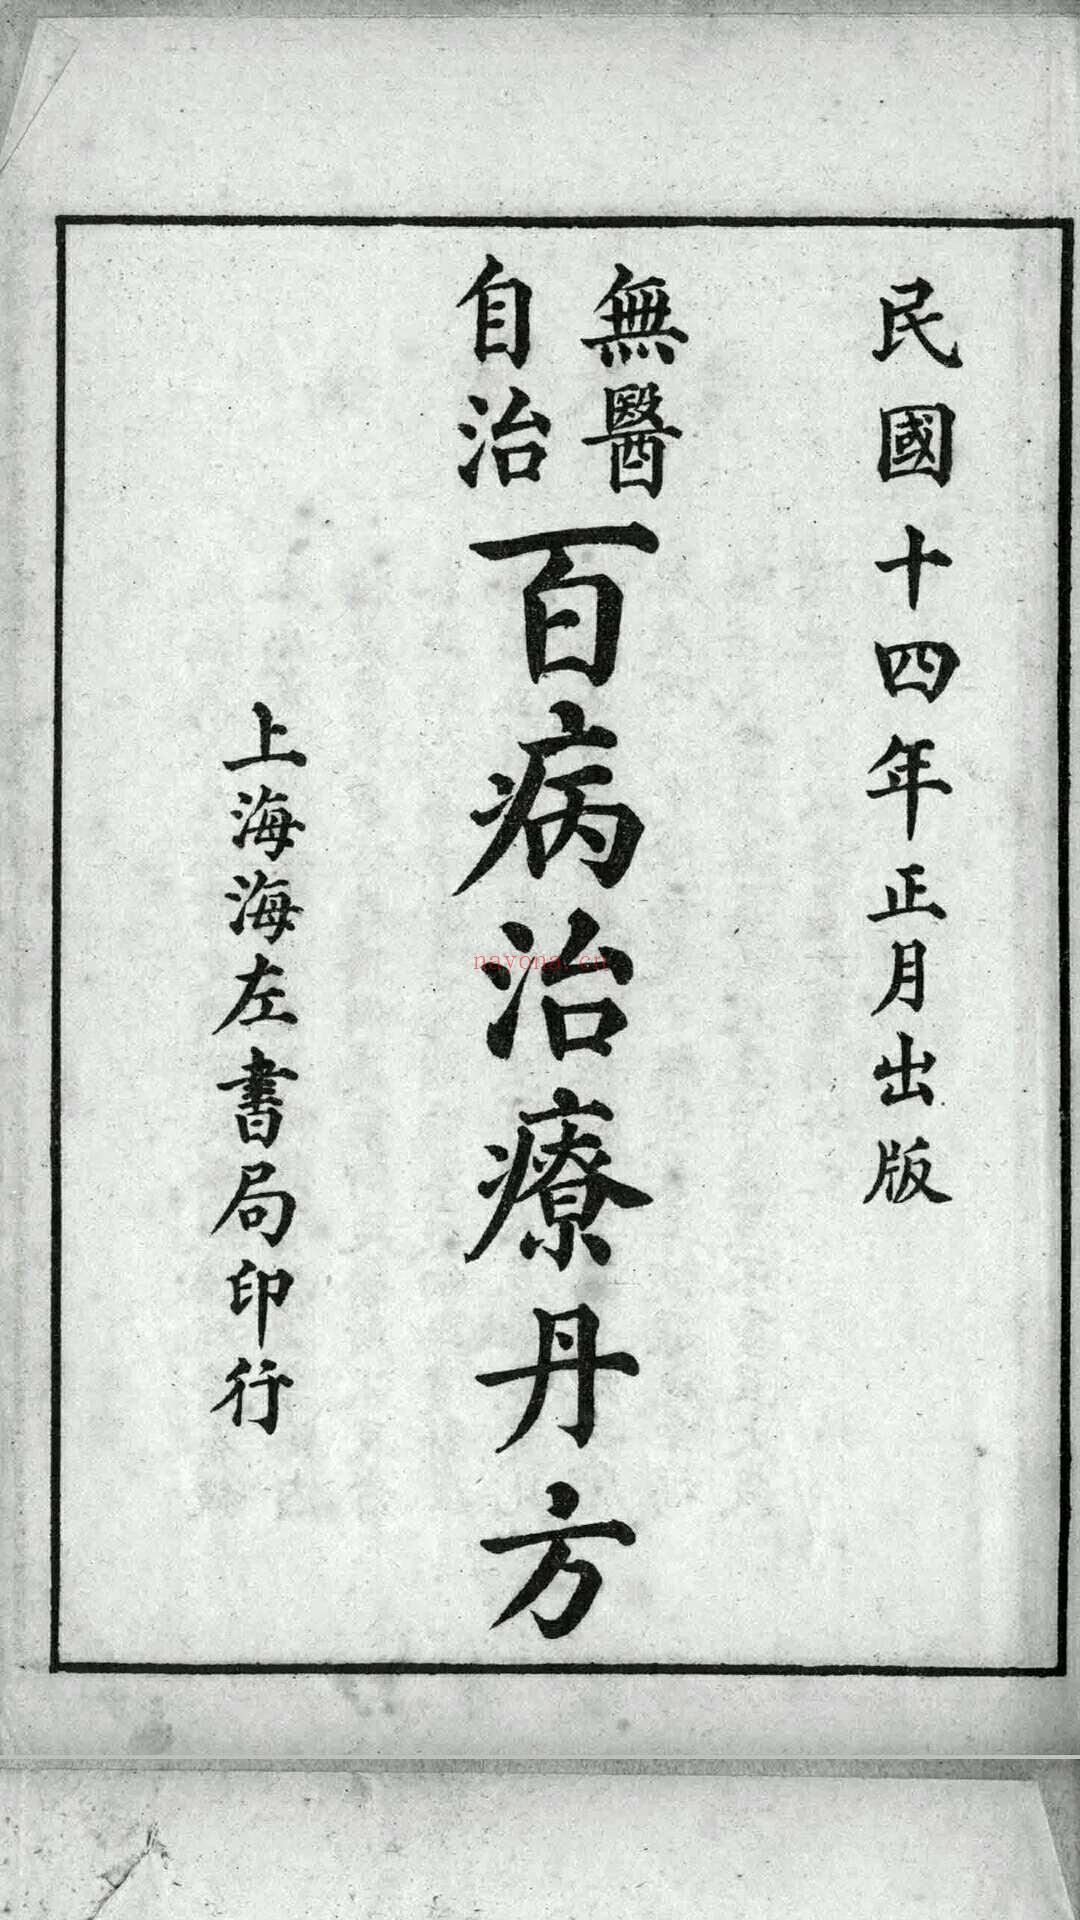 民國十四年正月出版
無醫
自治
百病治療丹方
上海海左書局印行
nayona.cn